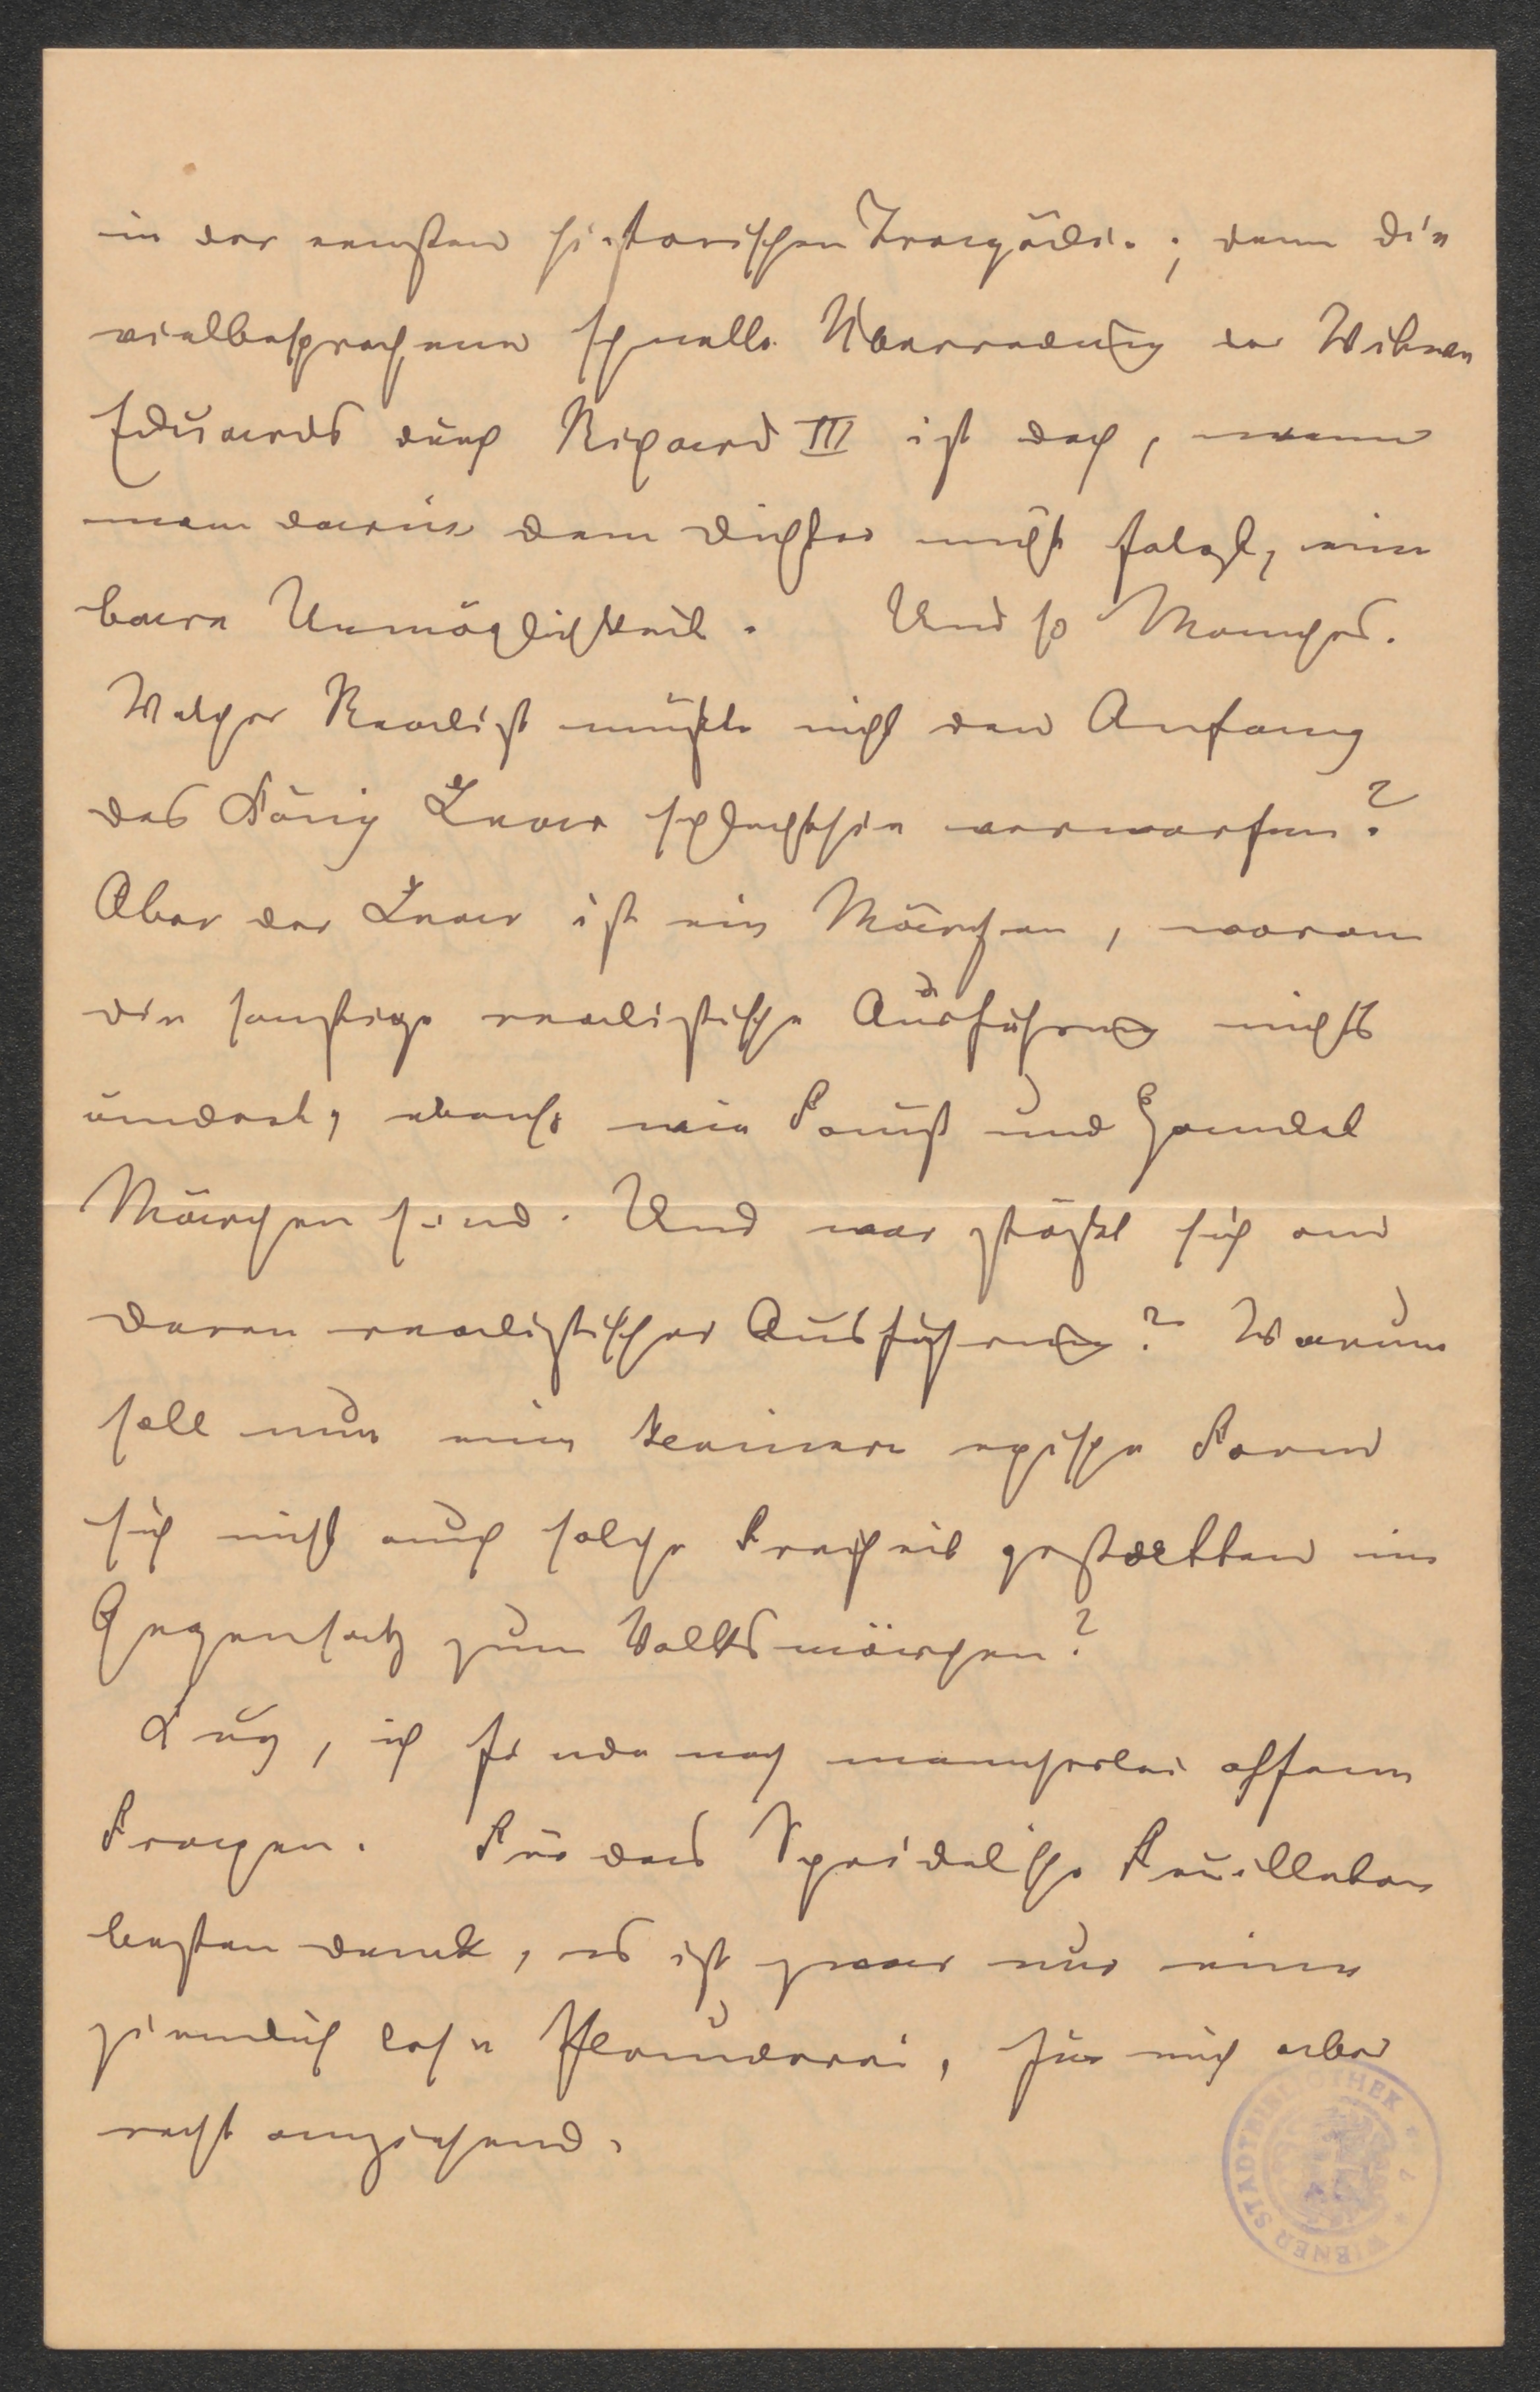 in der ernsten historischen Tragödie; denn die
vielbesprochene schnelle Überredung der Witwe
Eduards durch Richard III ist doch, wenn
man darin dem Dichter nicht folgt, eine
bare Unmöglichkeit. Und so Manches.
Welcher Realist müßte nicht den Anfang
des König Lear schlechthin verwerfen?
Aber der Lear ist ein Märchen, woran
die sonstige realistische Ausführung nichts
ändert, ebenso wie Faust und Hamlet
Märchen sind. Und wer stößt sich an
deren realistischer Ausführung? Warum
soll nun eine kleinere epische Form
sich nicht auch solche Freiheit gestatten im
Gegensatz zum Volksmärchen?
Kurz, ich finde noch mancherlei offene
Fragen. Für das Speidelsche Feuilleton
besten Dank, es ist zwar nur eine
ziemlich lose Plauderei, für mich aber
recht anziehend.
WIENER STADTBIBLIOTHEK